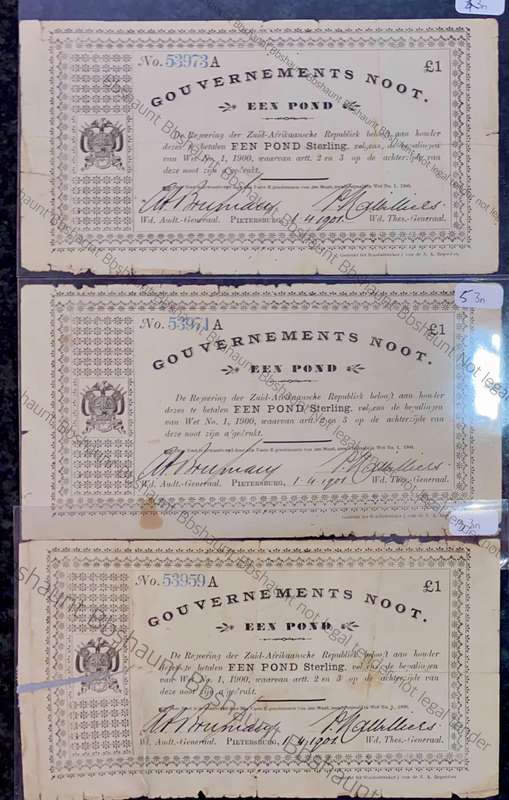 No. 53973 A £1
GOUVERNEMENTS NOOT.
EEN POND
De Regeering der Zuid-Afrikaansche Republiek belooft aan houder
dezes te betalen EEN POND Sterling, volgens de bepalingen
van Wet No. 1, 1900, waarvan artt. 2 en 3 op de achterzijde van
deze noot zijn afgedrukt.
Wd. Audt.-Generaal. PIETERSBURG, 1 4 1901 Wd. Thes.-Generaal.
5 3n
No. 53971 A £1
GOUVERNEMENTS NOOT.
EEN POND
De Regeering der Zuid-Afrikaansche Republiek belooft aan houder
dezes te betalen EEN POND Sterling, volgens de bepalingen
van Wet No. 1, 1900, waarvan artt. 2 en 3 op de achterzijde van
deze noot zijn afgedrukt.
Wd. Audt.-Generaal. PIETERSBURG, 1 4 1901 Wd. Thes.-Generaal.
No. 53959 A £1
GOUVERNEMENTS NOOT.
EEN POND
De Regeering der Zuid-Afrikaansche Republiek belooft aan houder
dezes te betalen EEN POND Sterling, volgens de bepalingen
van Wet No. 1, 1900, waarvan artt. 2 en 3 op de achterzijde van
deze noot zijn afgedrukt.
Wd. Audt.-Generaal. PIETERSBURG, 1 4 1901 Wd. Thes.-Generaal.
Bbshaunt not legal tender